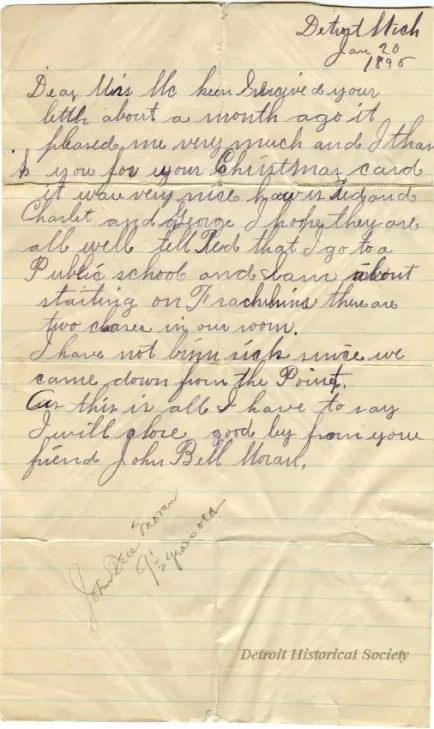 Detroit Mich
Jan 20
1895
Dear Miss Mc keen I recived your
letter about a month ago it
pleased me very much and I than
k you for your Christmas card
it was very nise how is Ted and
Charlet and George I hope they are
all well tell Ted that I go to a
Public school and I am about
starting on Frackhins there are
two clases in our room.
I have not binn sick since we
came down from the Point.
As this is all I have to say
I will close good by from your
friend John Bell Moran.
John Bell Moran
9½ years old
Detroit Historical Society